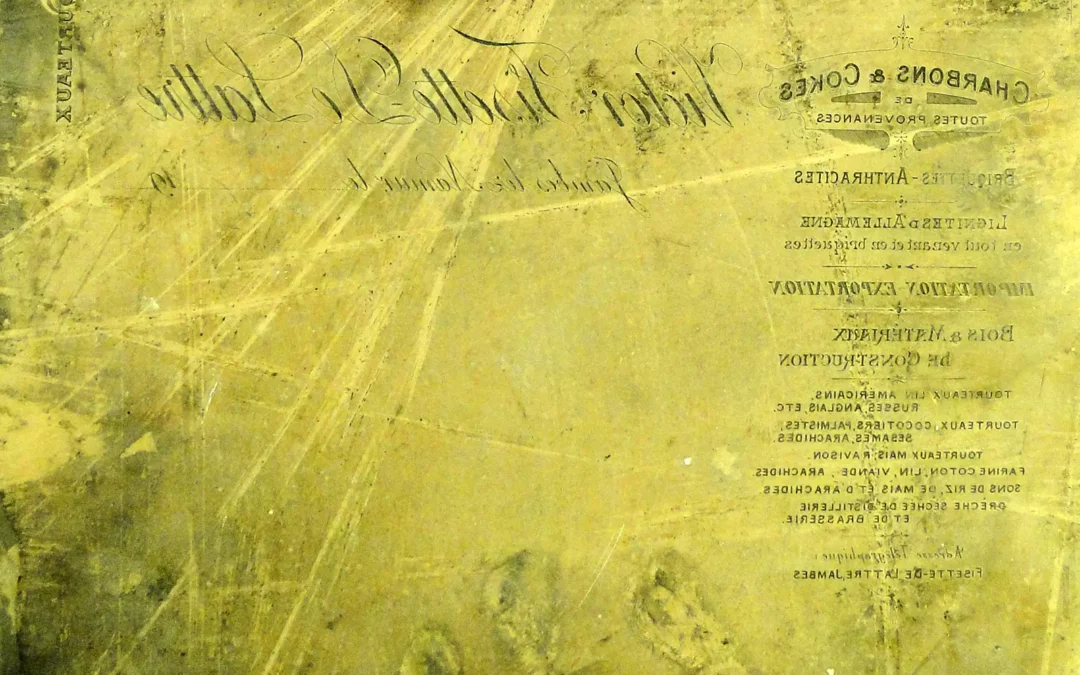 Victor Fisette-De Lattre
Jambes lez-Namur le 19
CHARBONS & COKES
DE
TOUTES PROVENANCES
BRIQUETTES-ANTHRACITES
LIGNITES D'ALLEMAGNE
en tout venant et en briquettes
IMPORTATION EXPORTATION
BOIS & MATÉRIAUX
DE CONSTRUCTION
TOURTEAUX LIN AMÉRICAINS,
RUSSES, ANGLAIS, ETC.
TOURTEAUX, COCOTIERS, PALMISTES,
SESAMES, ARACHIDES.
TOURTEAUX MAIS, RAVISON.
FARINE COTON, LIN, VIANDE, ARACHIDES
SONS DE RIZ, DE MAIS ET D'ARACHIDES
DRÊCHE SÉCHÉE DE DISTILLERIE
ET DE BRASSERIE.
Adresse Télégraphique:
FISETTE-DE LATTRE, JAMBES